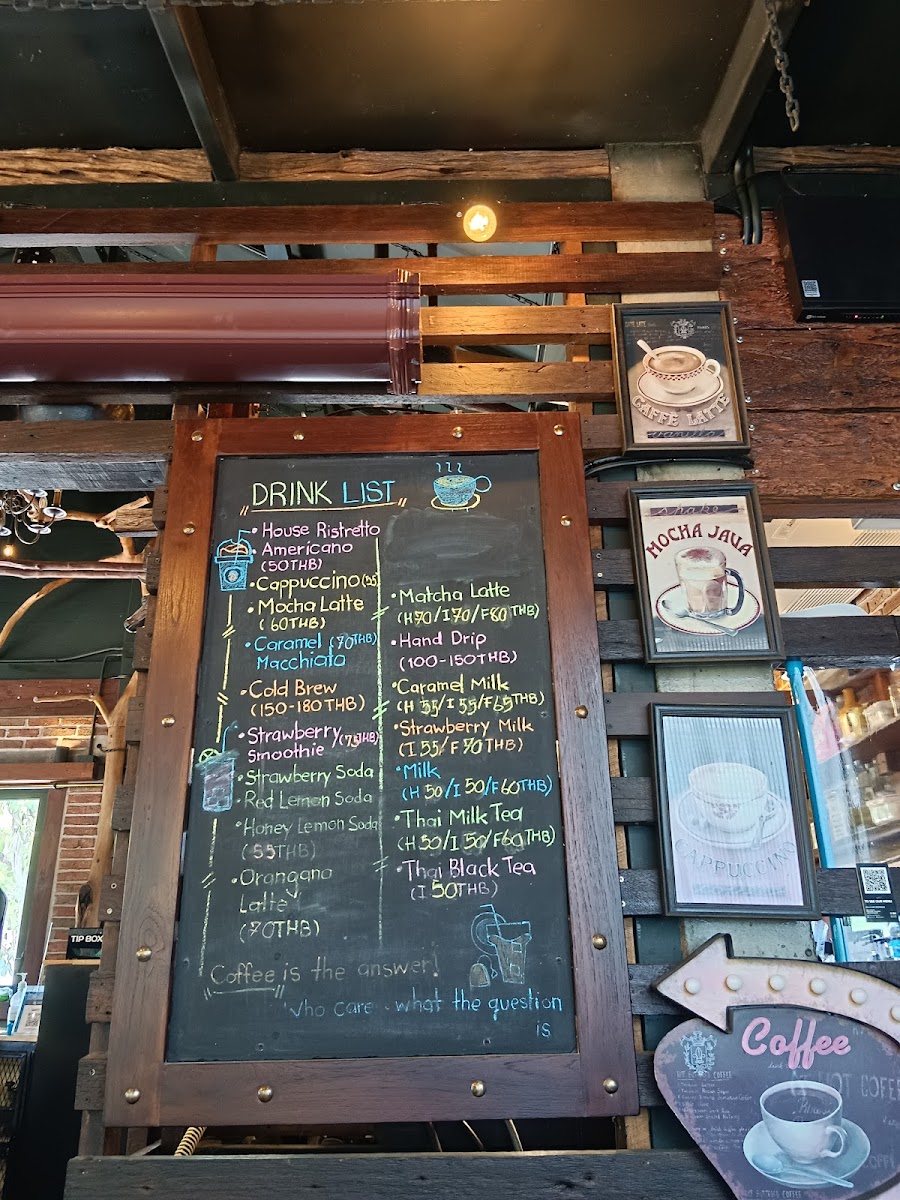 DRINK LIST
• House Ristretto
• Americano
(50THB)
• Cappuccino (55
• Mocha Latte
(60THB)
• Caramel (70THB)
Macchiato
• Cold Brew
(150-180THB)
• Strawberry (75THB)
Smoothie
• Strawberry Soda
Red Lemon Soda
• Honey Lemon Soda
(55THB)
• Orangano
Latte
(70THB)
• Matcha Latte
(H70/I70/F80THB)
• Hand Drip
(100-150THB)
• Caramel Milk
(H 55/I 55/F65THB)
• Strawberry Milk
(I 55/F 70THB)
• Milk
(H 50/I 50/F60THB)
• Thai Milk Tea
(H 50/I 50/F60THB)
• Thai Black Tea
(I 50THB)
Coffee is the answer!
who care what the question
is
CAFFE LATTE
CAFFE LATTE
vanilla
shake
MOCHA JAVA
CAPPUCCINO
TIP BOX
Coffee
HOT COFFEE